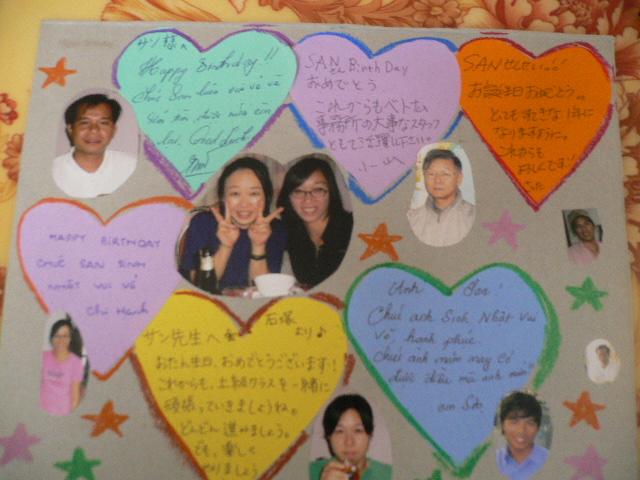 サン様へ
Happy Birthday!!
Chúc San luôn vui vẻ và
Good luck!
SAN さん Birth Day
おめでとう
これからもベトナム
事務所の大事なスタッフ
として活躍して下さい。
小山
SANせんせい!!
お誕生日おめでとう。
とてもすてきな1年に
なりますように。
これからも
よろしくです!
HAPPY BIRTHDAY
CHÚC SAN SINH
NHẬT VUI VẺ
Chị Hạnh
サン先生へ
石塚より♪
おたん生日、おめでとうございます!
これからも、土曜クラスを一緒に
頑張っていきましょうね。
どんどん進みましょう。
でも、楽しく
やりましょう
Anh San!
Chúc anh Sinh Nhật Vui
Vẻ, hạnh phúc.
Chúc anh năm nay có
được điều mà anh muốn